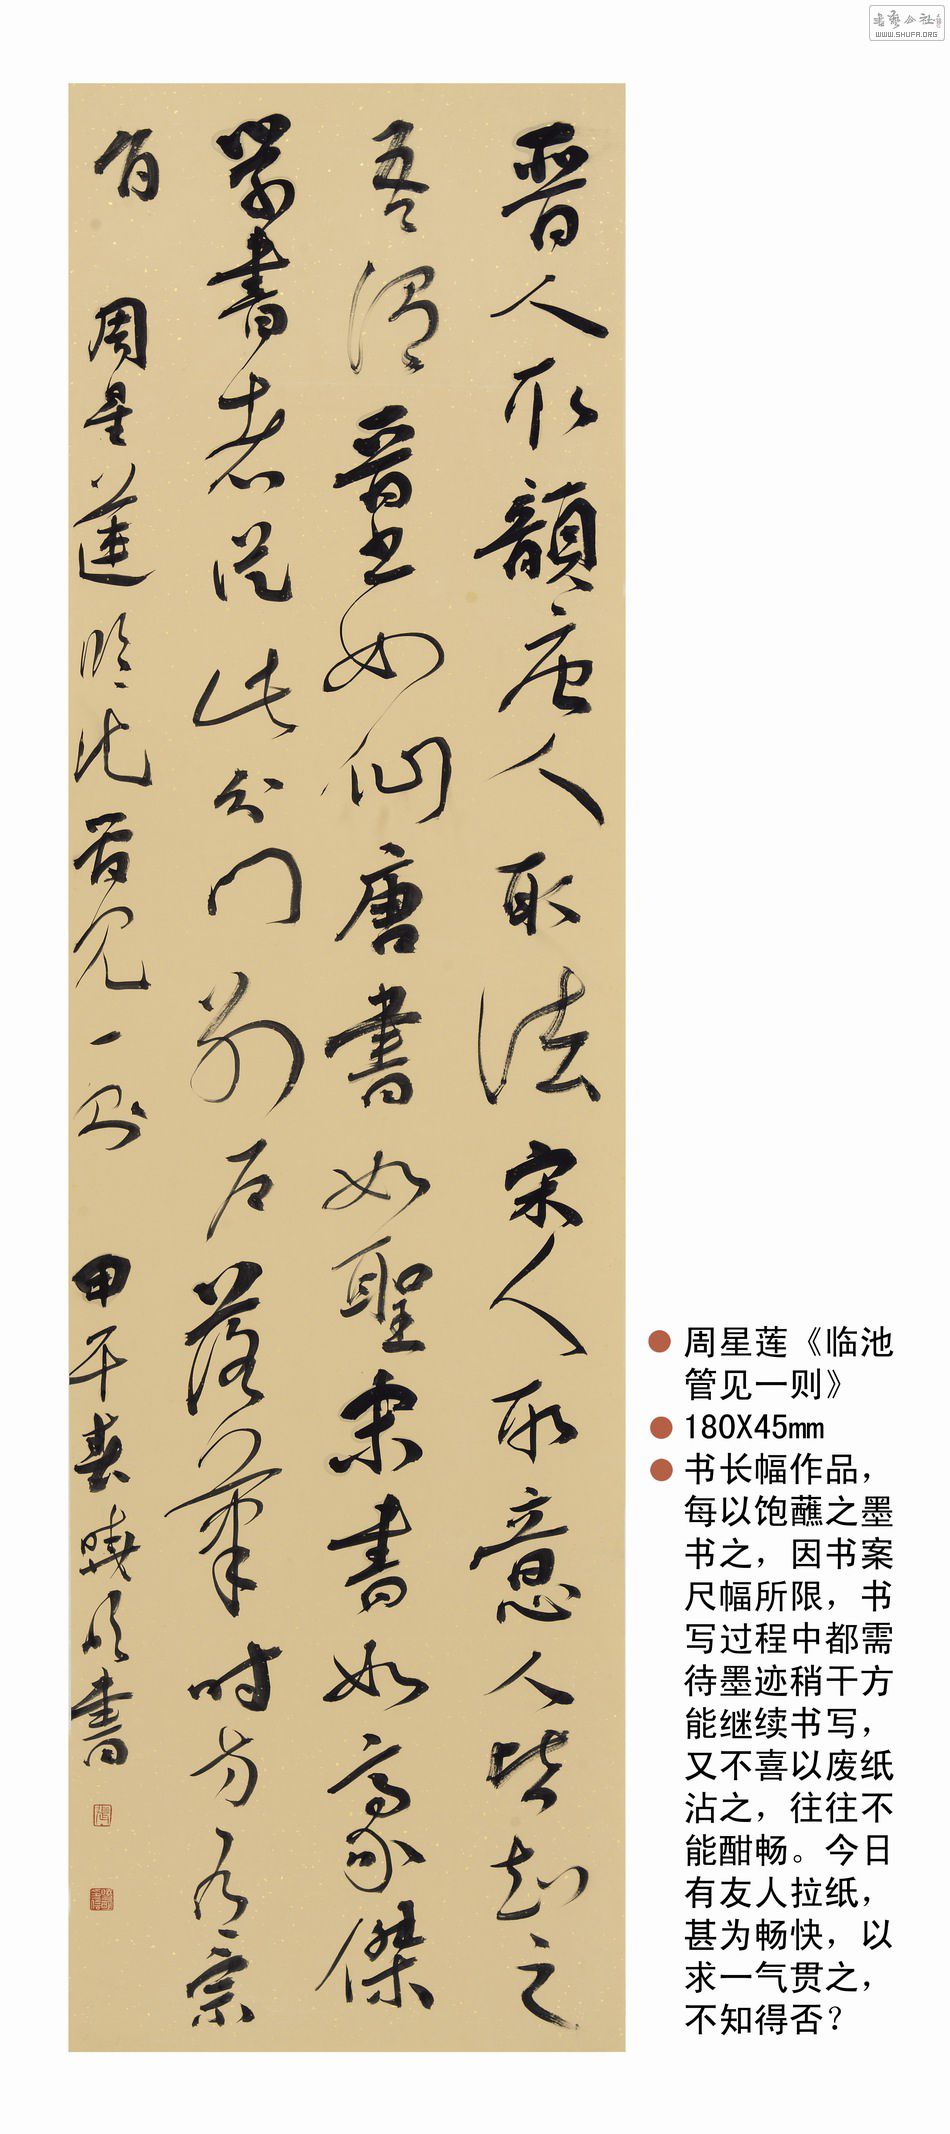 書藝公社
WWW.SHUFA.ORG
晋人取韻唐人取法宋人取意人皆知之
吾謂晋书如仙唐書如聖宋書如豪傑
學書者從此分門别户落筆時方有宗
旨 周星蓮臨池管見一則 甲午春曉書
周星莲《临池
管见一则》
180X45mm
书长幅作品，
每以饱蘸之墨
书之，因书案
尺幅所限，书
写过程中都需
待墨迹稍干方
能继续书写，
又不喜以废纸
沾之，往往不
能酣畅。今日
有友人拉纸，
甚为畅快，以
求一气贯之，
不知得否？